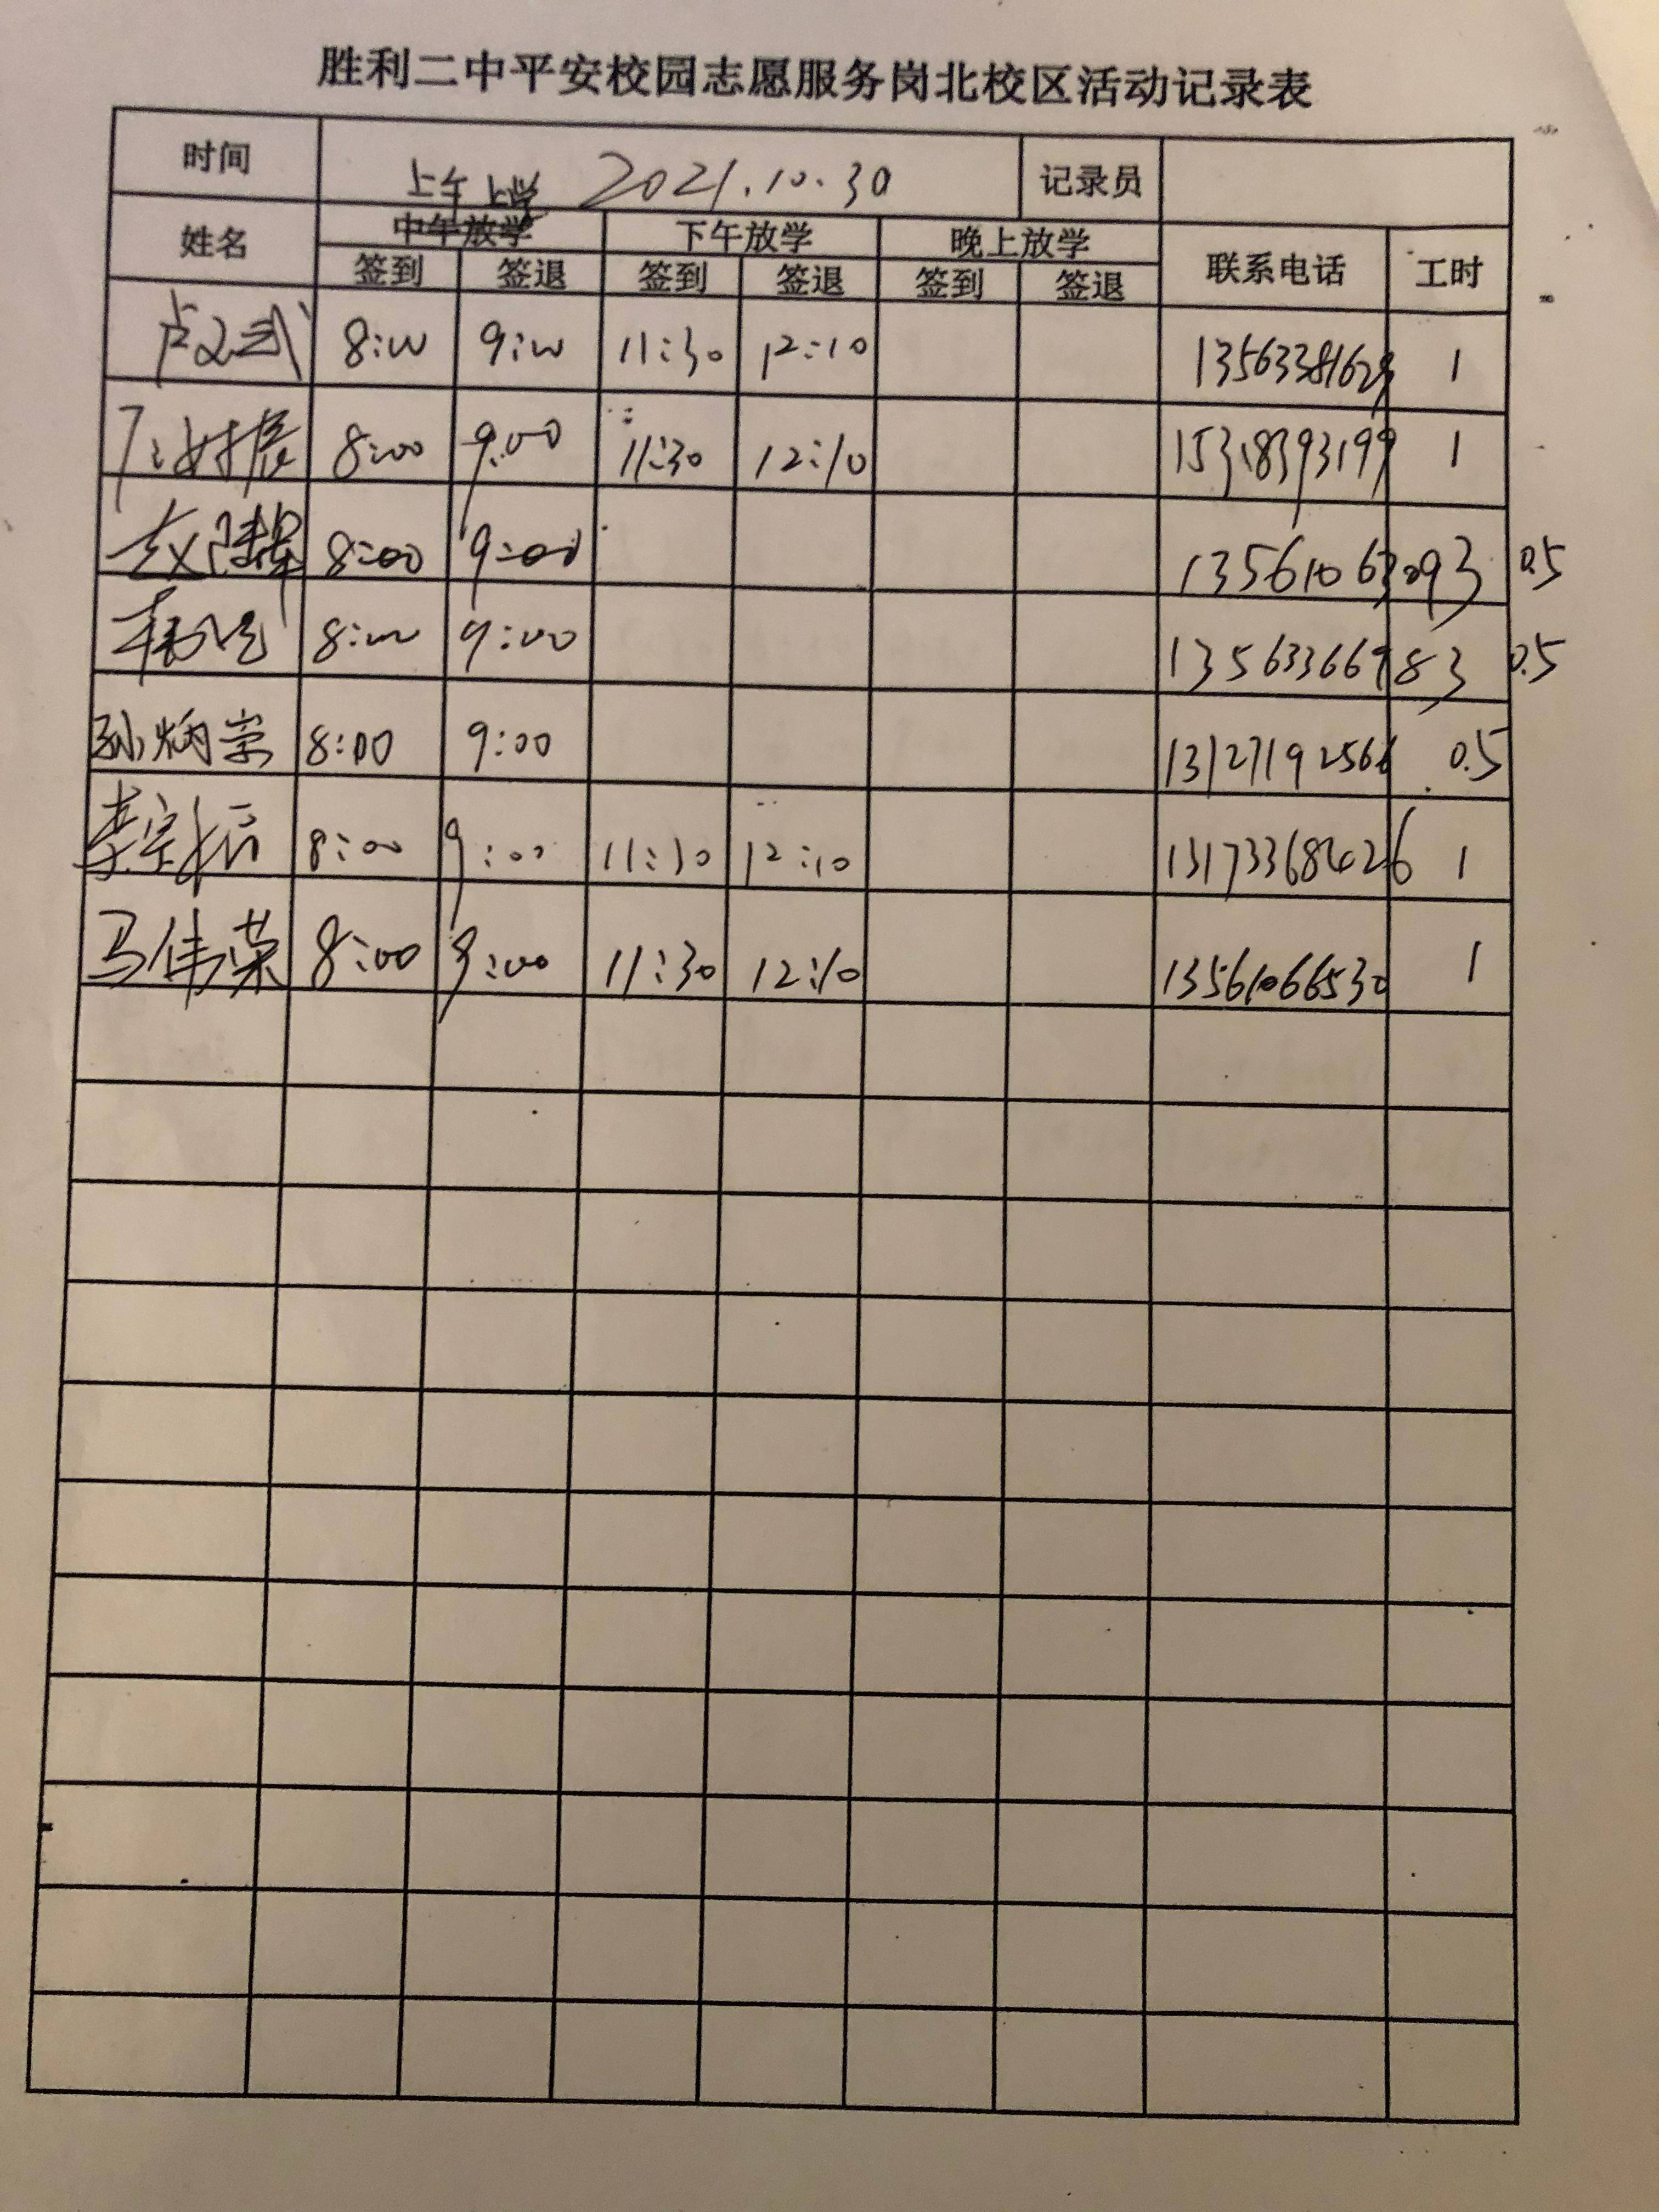 胜利二中平安校园志愿服务岗北校区活动记录表
时间 上午上学 2021.10.30 记录员
姓名 中午放学 下午放学 晚上放学 联系电话 工时
签到 签退 签到 签退 签到 签退
卢文武 8:00 9:00 11:30 12:10 13563381629 1
8:00 9:00 11:30 12:10 15318393199 1
赵 8:00 9:00 13561063093 0.5
8:00 9:00 13563366983 0.5
孙炳常 8:00 9:00 13127192566 0.5
李宗振 8:00 9:00 11:30 12:10 13173368426 1
马伟荣 8:00 9:00 11:30 12:10 13561066530 1